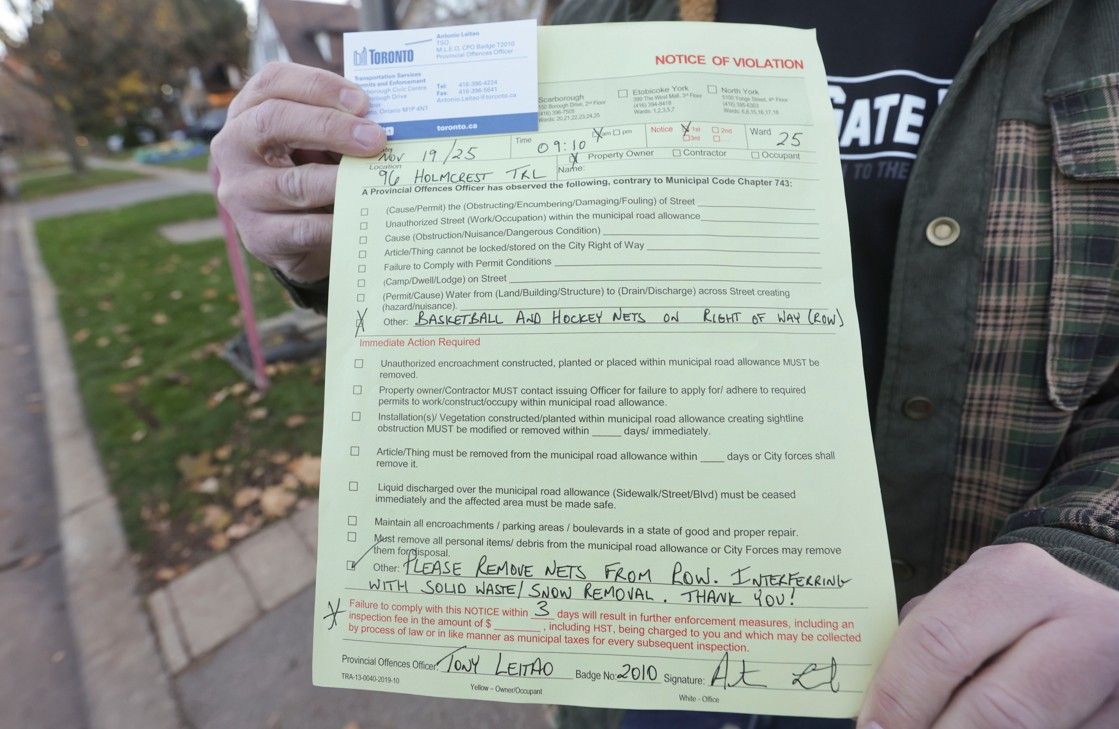 TORONTO
Antonio Leitao
TSO
M.L.E.O, CPO Badge T2010
Provincial Offences Officer
Transportation Services
Permits and Enforcement
Scarborough Civic Centre
Borough Drive
Toronto, Ontario M1P 4N7
Tel: 416-396-4224
Fax: 416-396-5641
Antonio.Leitao@toronto.ca
toronto.ca
NOTICE OF VIOLATION
Scarborough
150 Borough Drive, 2nd Floor
(416) 396-7505
Wards: 20,21,22,23,24,25
☐ Etobicoke York
399 The West Mall, 3rd Floor
(416) 394-8418
Wards: 1,2,3,5,7
☐ North York
5100 Yonge Street, 4th Floor
(416) 395-6303
Wards: 6,8,15,16,17,18
Nov 19/25
Time 09:10 ☒ am ☐ pm
Notice ☒ 1st ☐ 2nd
☐ 3rd ☐
Ward 25
Location
96 HOLMCREST TRL
☒ Property Owner ☐ Contractor ☐ Occupant
Name:
A Provincial Offences Officer has observed the following, contrary to Municipal Code Chapter 743:
☐ (Cause/Permit) the (Obstructing/Encumbering/Damaging/Fouling) of Street
☐ Unauthorized Street (Work/Occupation) within the municipal road allowance
☐ Cause (Obstruction/Nuisance/Dangerous Condition)
☐ Article/Thing cannot be locked/stored on the City Right of Way
☐ Failure to Comply with Permit Conditions
☐ (Camp/Dwell/Lodge) on Street
☐ (Permit/Cause) Water from (Land/Building/Structure) to (Drain/Discharge) across Street creating
(hazard/nuisance).
☒ Other: BASKETBALL AND HOCKEY NETS ON RIGHT OF WAY (ROW)
Immediate Action Required
☐ Unauthorized encroachment constructed, planted or placed within municipal road allowance MUST be
removed.
☐ Property owner/Contractor MUST contact issuing Officer for failure to apply for/ adhere to required
permits to work/construct/occupy within municipal road allowance.
☐ Installation(s)/ Vegetation constructed/planted within municipal road allowance creating sightline
obstruction MUST be modified or removed within _____ days/ immediately.
☐ Article/Thing must be removed from the municipal road allowance within ____ days or City forces shall
remove it.
☐ Liquid discharged over the municipal road allowance (Sidewalk/Street/Blvd) must be ceased
immediately and the affected area must be made safe.
☐ Maintain all encroachments / parking areas / boulevards in a state of good and proper repair.
☐ Must remove all personal items/ debris from the municipal road allowance or City Forces may remove
them for disposal.
☑ Other: PLEASE REMOVE NETS FROM ROW. INTERFERRING
WITH SOLID WASTE/ SNOW REMOVAL. THANK YOU!
Failure to comply with this NOTICE within 3 days will result in further enforcement measures, including an
inspection fee in the amount of $ _______ , including HST, being charged to you and which may be collected
by process of law or in like manner as municipal taxes for every subsequent inspection.
Provincial Offences Officer: TONY LEITAO Badge No: 2010 Signature:
TRA-13-0040-2019-10
Yellow – Owner/Occupant
White - Office
GATE
TO THE